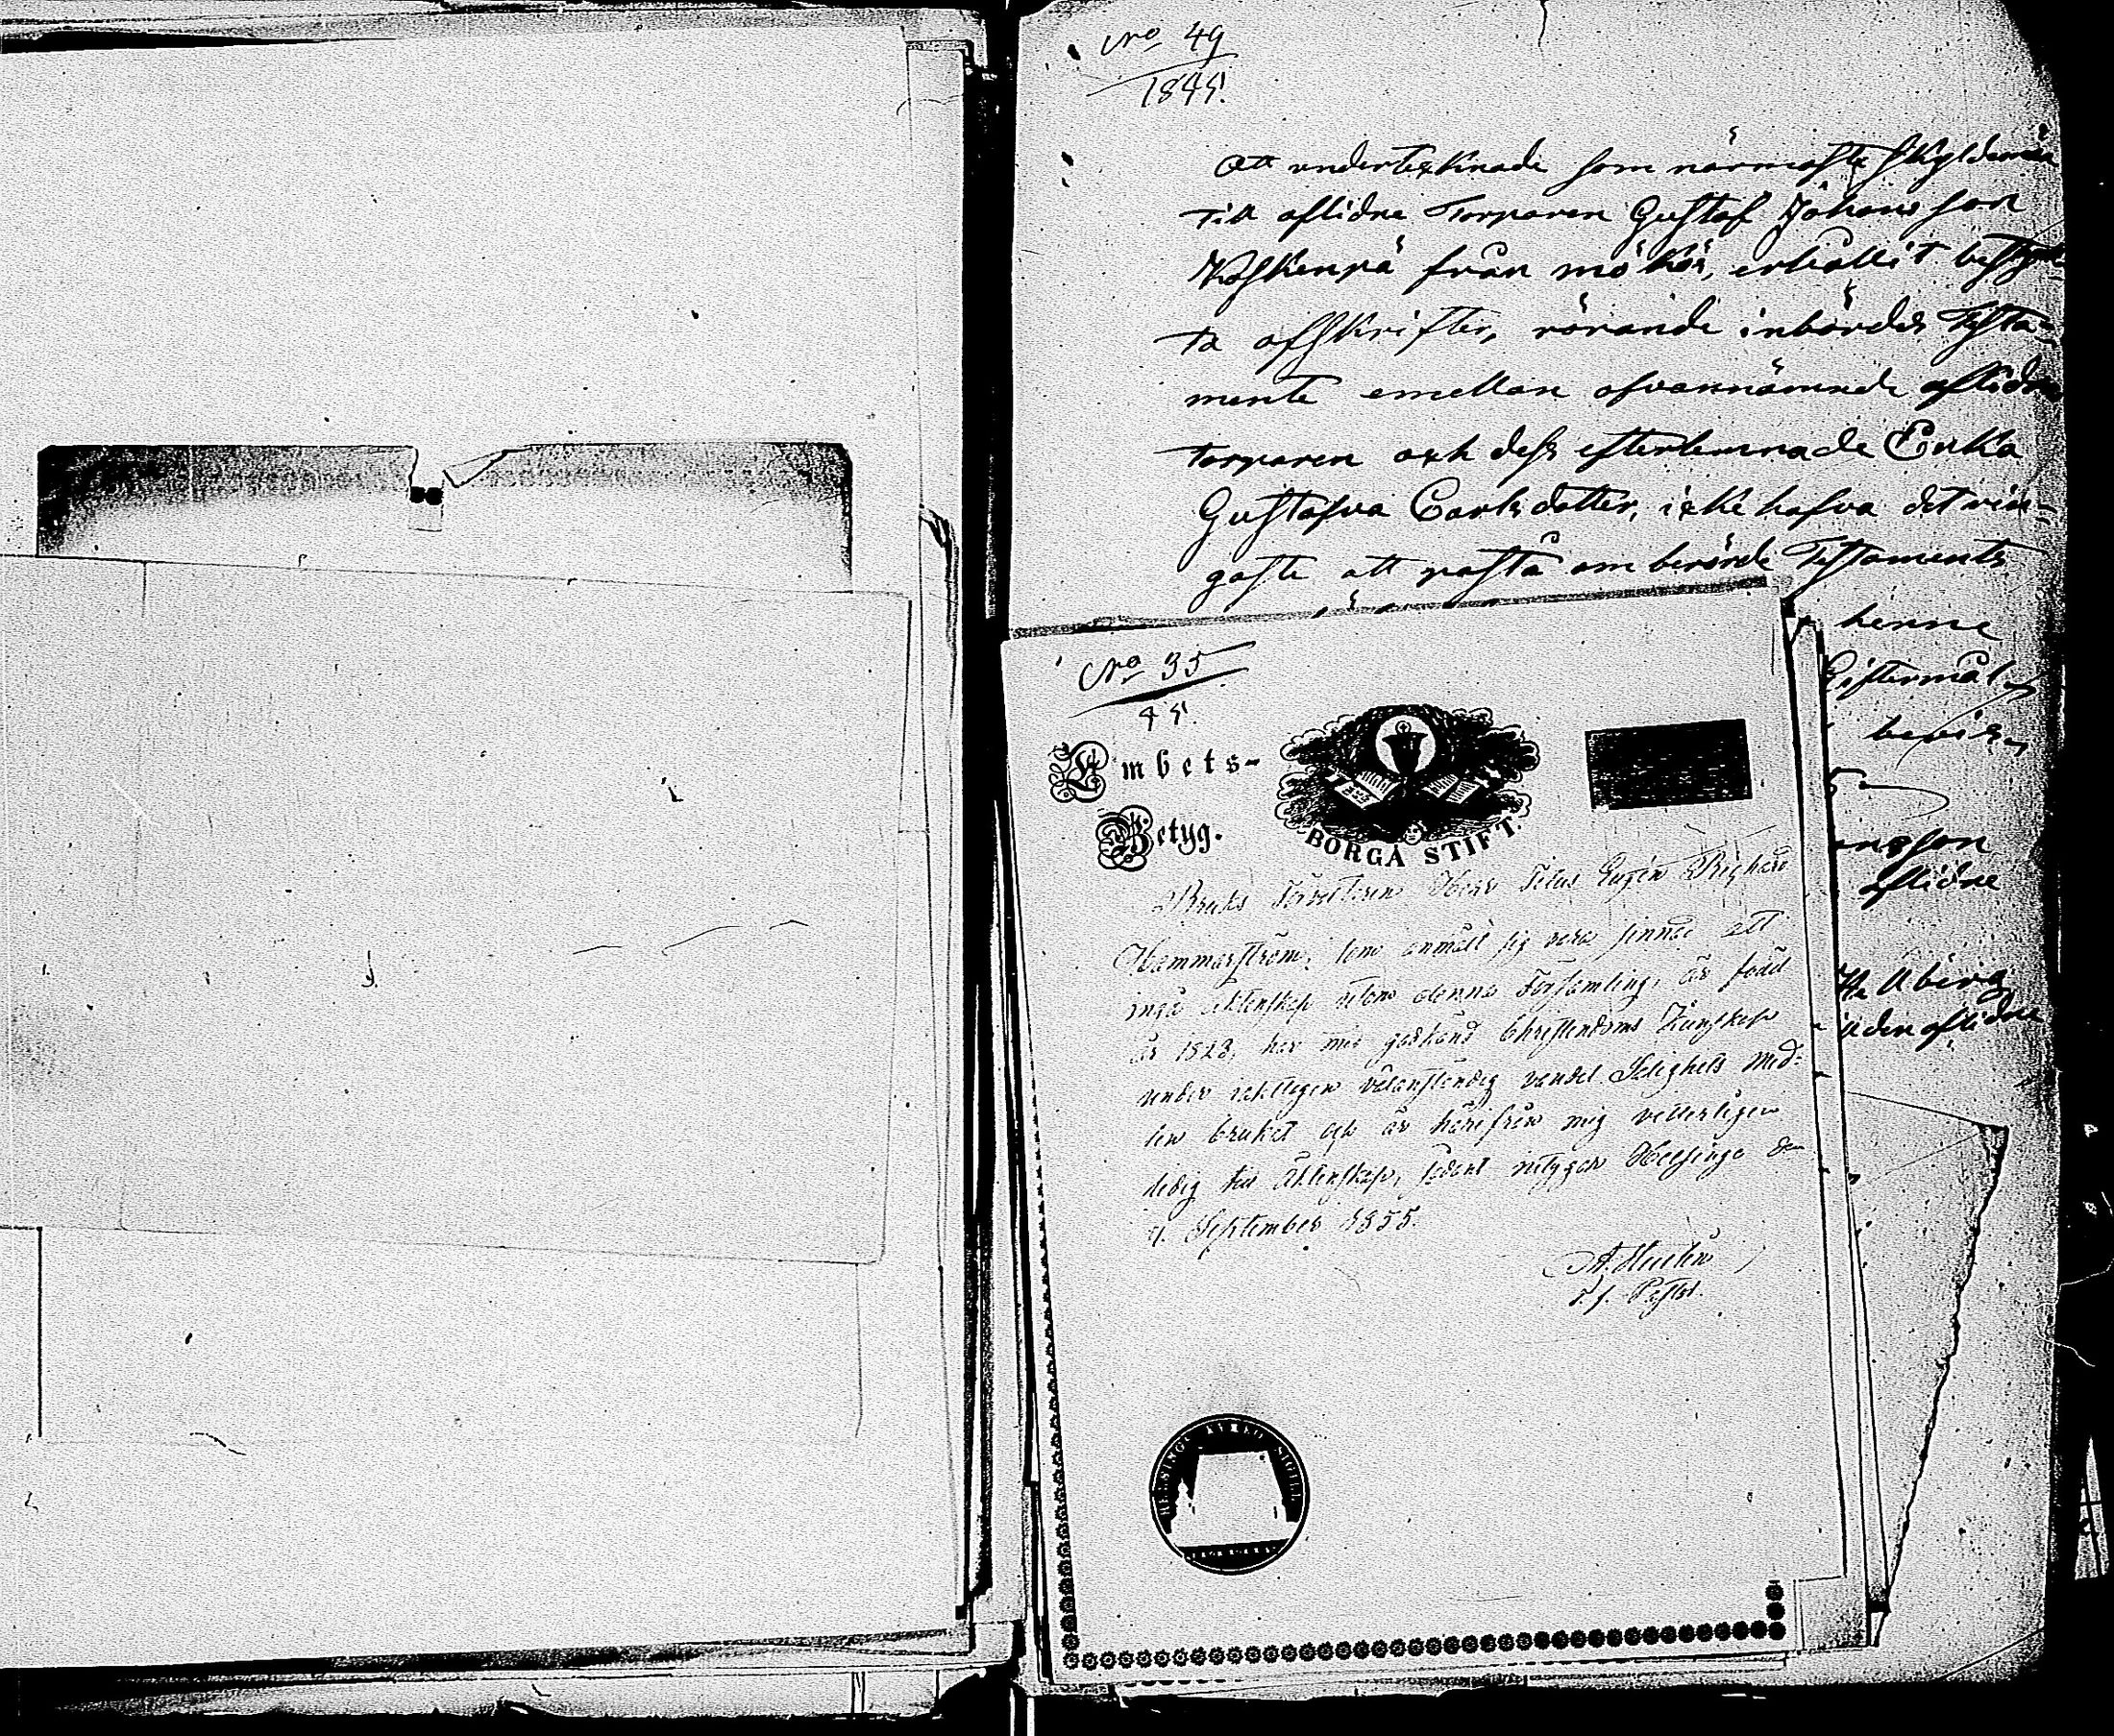 No 49
1845.
Att undertecknade som närmaste skyldemän
till aflidne Torparen Gustaf Johansson
Koskenpä från erhållit bestyrk-
ta afskrifter, rörande inbördes Testa-
mente emellan ofvannämnde aflidne
torparen och dess efterlemnade Enka
Gustafva Carlsdotter, icke hafva det rin-
gaste att påstå om berörde Testaments
henne
Giftermål
bevis,
ansson
aflidne
berg
den aflidne
No 35
45.
Embets-
Betyg.
BORGÅ STIFT.
Bruks Förvaltaren Herr Titus Eugén Richard
Hammarström, som anmält sig vara sinnad att
ingå Äktenskap utom denna Församling, är född
år 1823, har med godkänd Christendoms Kunskap
under välanständig vandel Salighets Med-
len brukat och är härifrån mig veterligen
ledig till Äktenskap, sådant intygar Helsinge den
September 1855.
v. f. Pastor.
HELSINGE KYRKO SIGILL